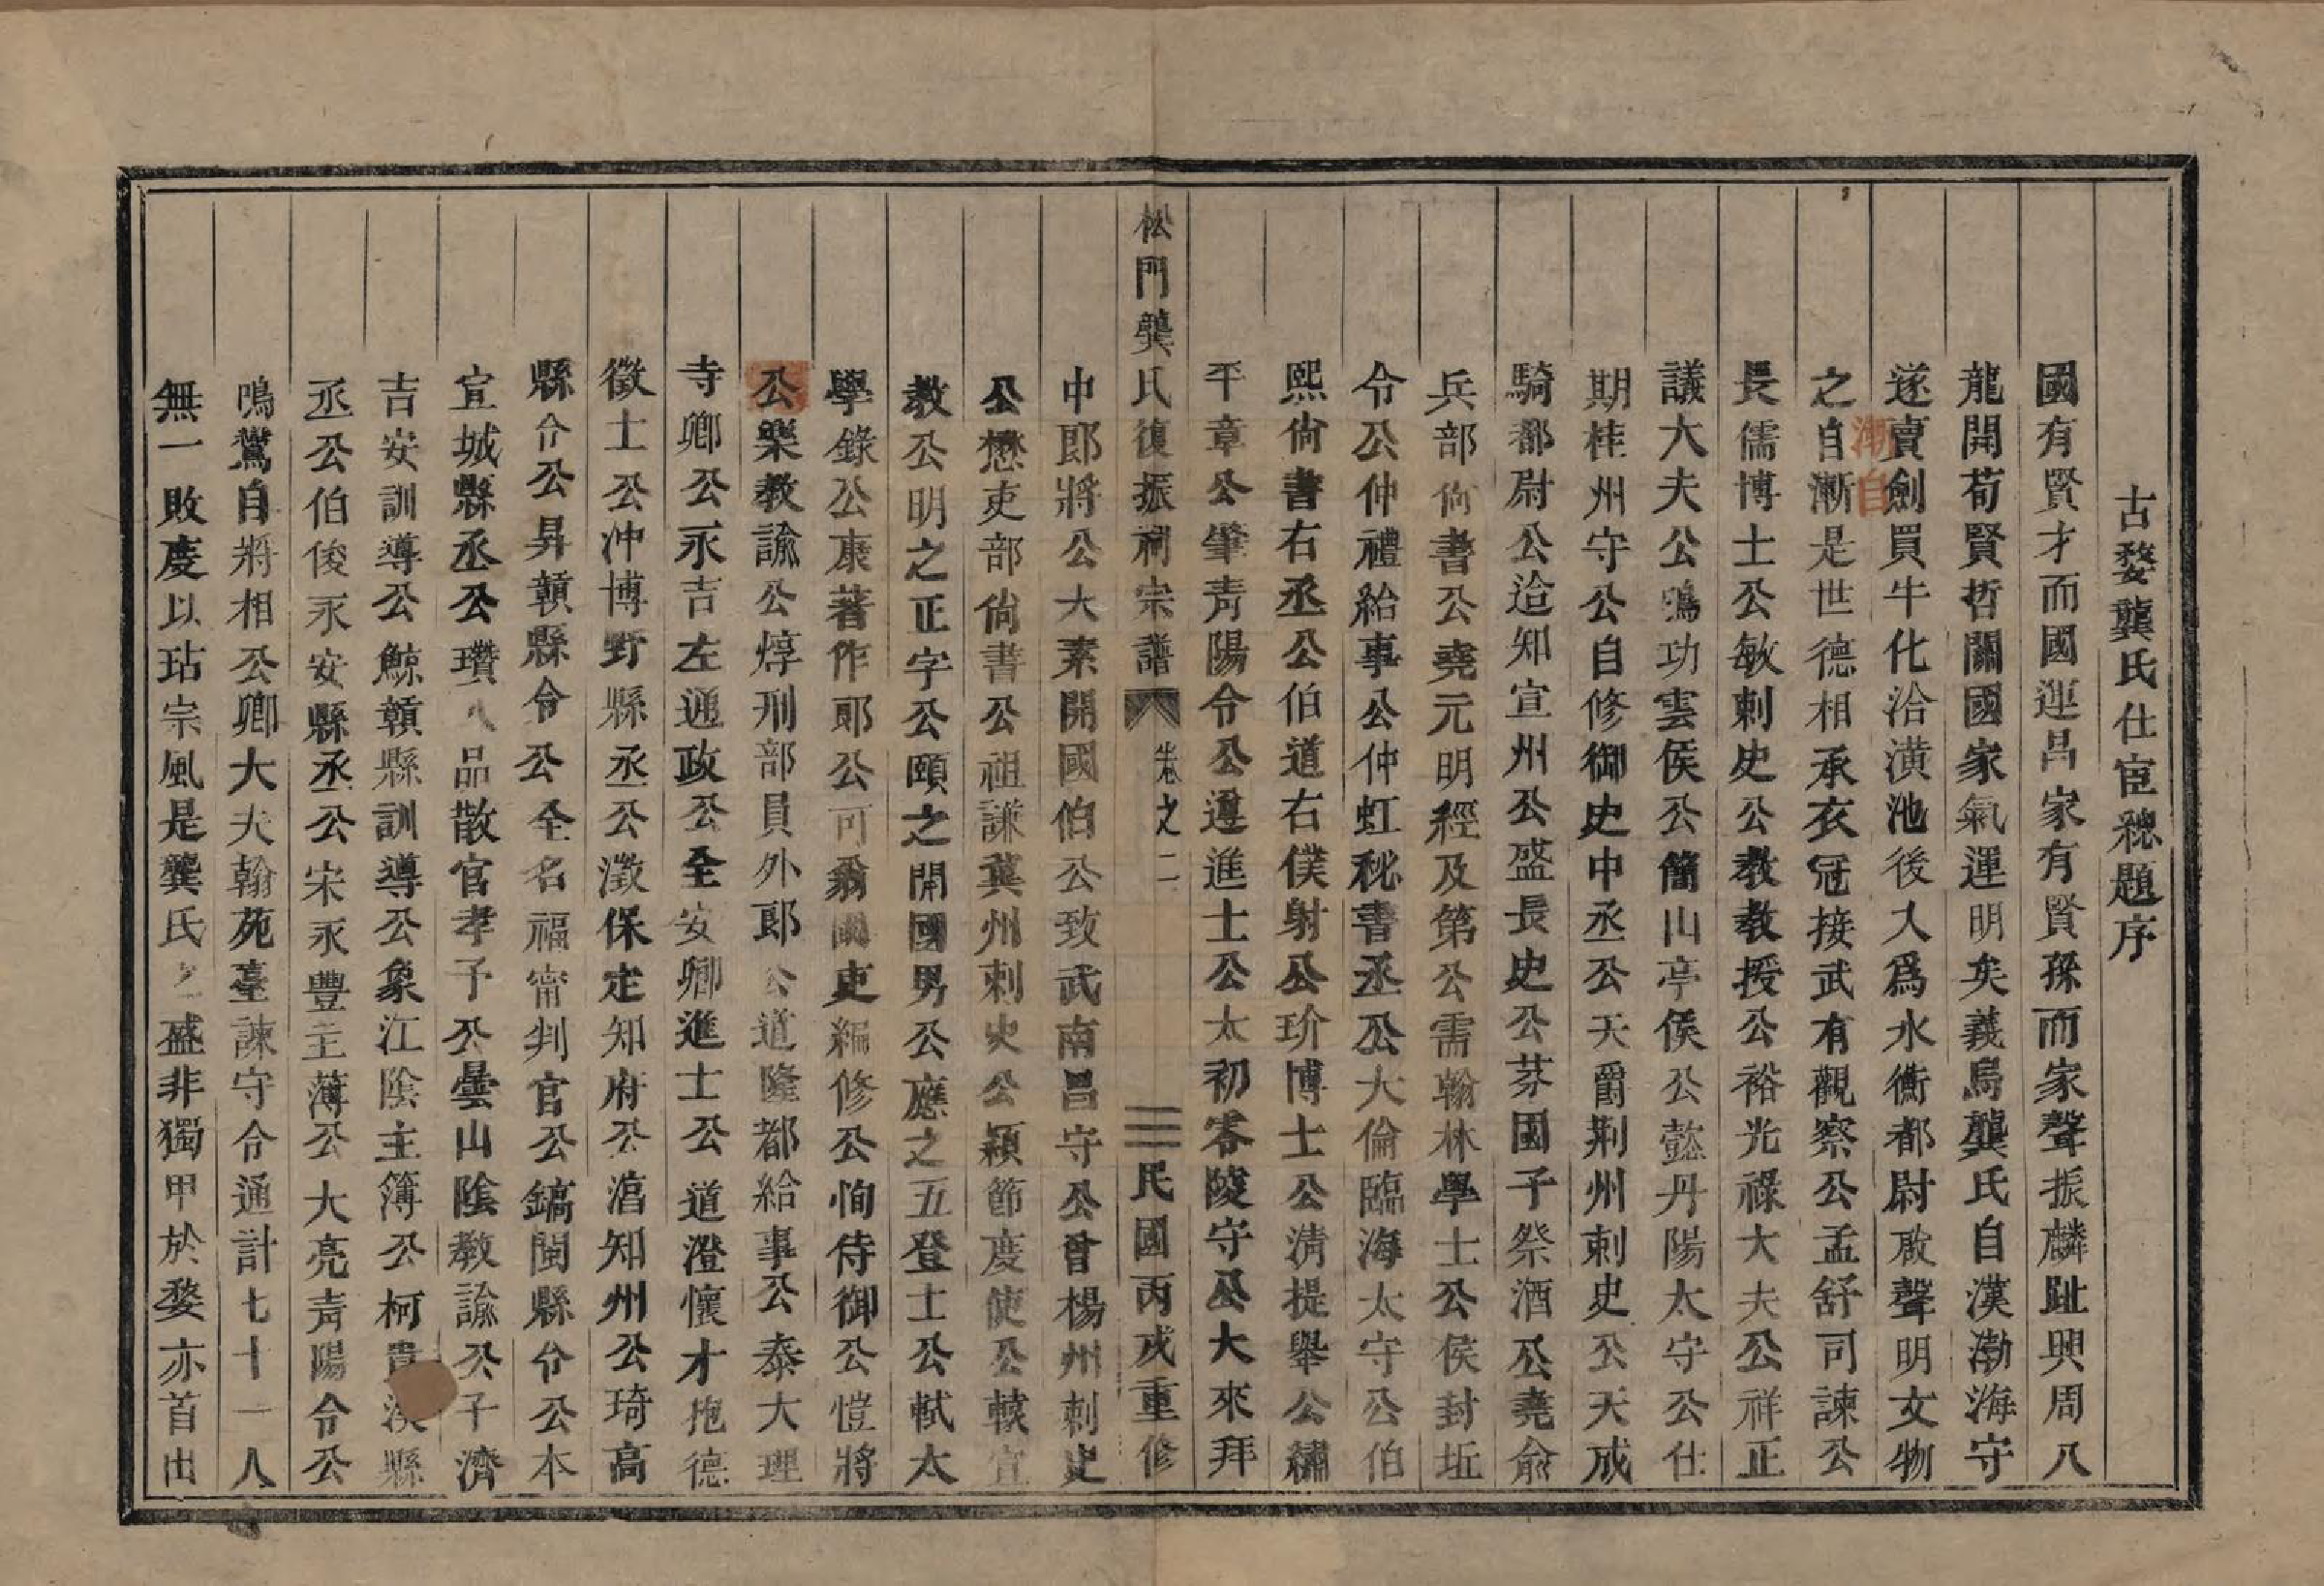 古婺龔氏仕宦總題序
國有賢才而國運昌家有賢孫而家聲振麟趾興周八
龍開荀賢哲關國家氣運明矣義烏龔氏自漢渤海守
遂賣劍買牛化洽潢池後人為水衡都尉敢聲明文物
漸自
之自漸是世德相承衣冠接武有觀察公孟舒司諫公
長儒博士公敏刺史公教教授公裕光祿大夫公祥正
議大夫公鴞功雲侯公簡山亭侯公懿丹陽太守公仕
期桂州守公自修御史中丞公天爵荆州刺史公天成
騎都尉公迨知宣州公盛長史公芬國子祭酒公堯俞
兵部尙書公堯元明經及第公需翰林學士公侯封坵
令公仲禮給事公仲虹秘書丞公大倫臨海太守公伯
熙尙書右丞公伯道右僕射公玠博士公淸提舉公繡
平章公肇靑陽令公遵進士公太初零陵守公大來拜
松門龔氏復振祠宗譜 卷之二 三 民國丙戌重修
中郎將公大素開國伯公致武南昌守公曾楊州刺史
公懋吏部尙書公祖謙冀州刺史公穎節度使公轅宣
教公明之正字公頤之開國男公應之五登士公軾太
學錄公康著作郎公可翁國吏編修公恂侍御公愷將
公樂教諭公焞刑部員外郎公道隆都給事公泰大理
寺卿公永吉左通政公全安卿進士公道澄懷才抱德
徵士公沖博野縣丞公澂保定知府公㵎知州公琦高
縣令公昇贛縣令公全名福甯判官公鎬閩縣令公本
宣城縣丞公瓚八品散官孝子公曇山陰教諭公子濟
吉安訓導公鯨贛縣訓導公象江陰主簿公柯貴溪縣
丞公伯俊永安縣丞公宋永豐主薄公大亮靑陽令公
鳴鸞自將相公卿大夫翰苑臺諫守令通計七十一人
無一敗度以玷宗風是龔氏之盛非獨甲於婺亦首出